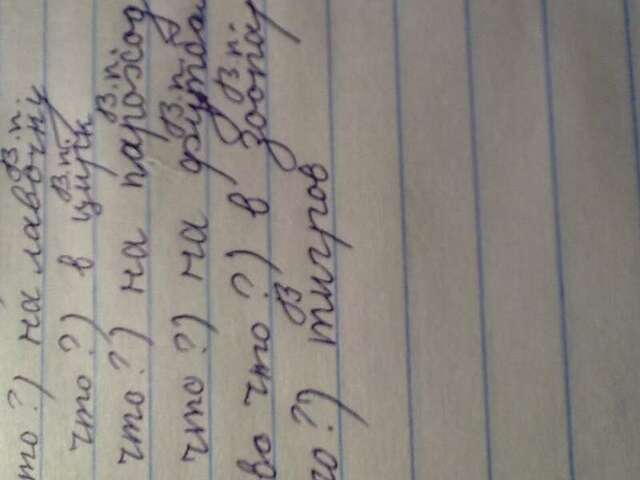 то?) на лавочку В.п.
что?) в цирк В.п.
что?) на пароход В.п.
что?) на футбол В.п.
во что?) в зоопар В.п.
го?) тигров В